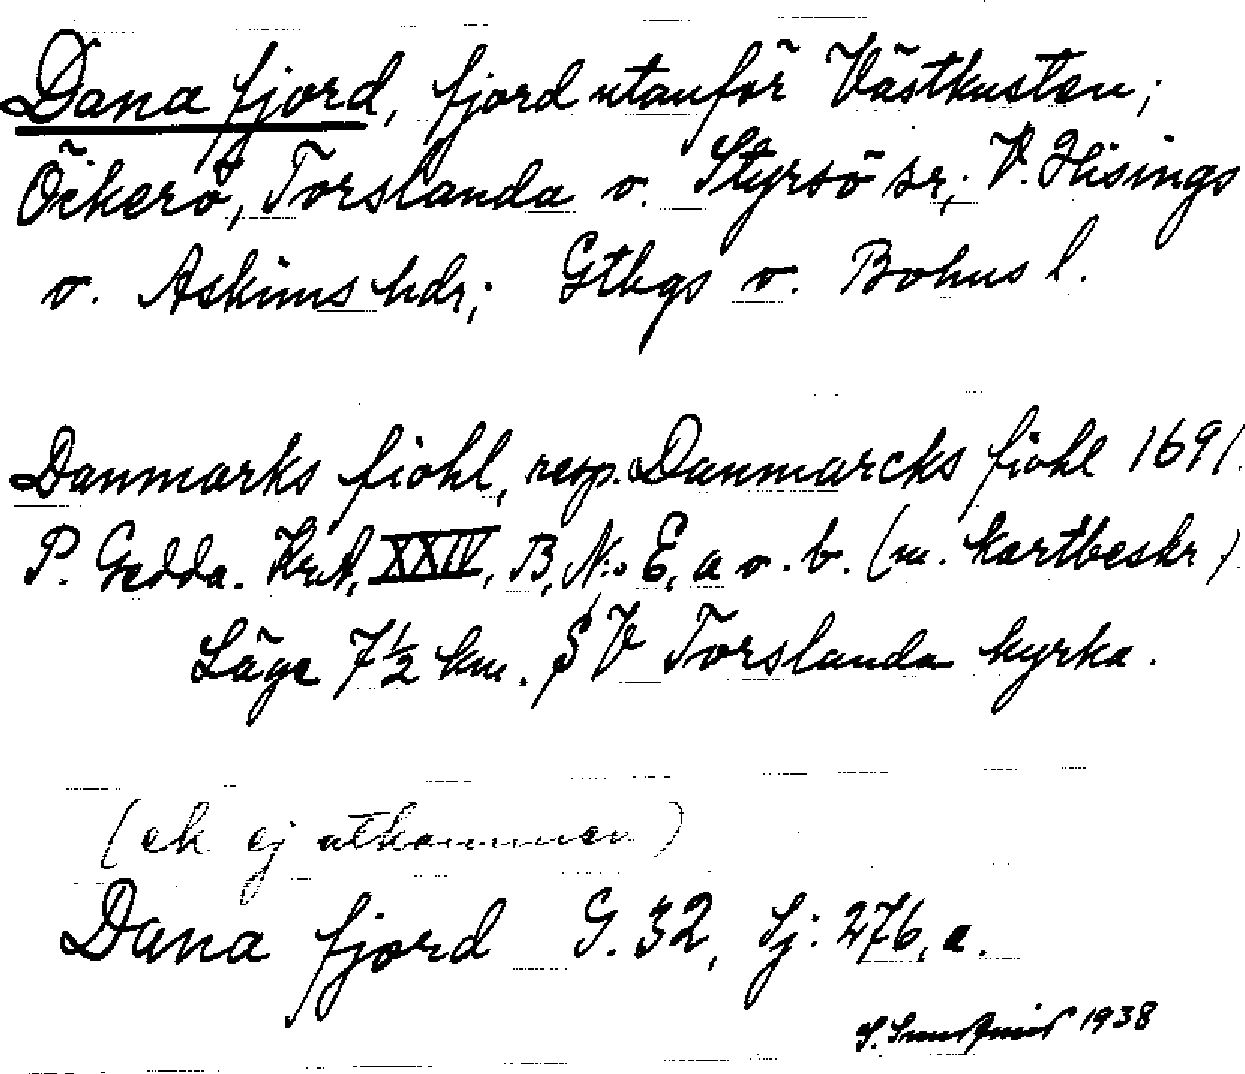 Dana fjord, fjord utanför Västkusten;
Öckerö, Torslanda o. Styrsö sr; V. Hisings
o. Askims hdr; Gtbgs o. Bohus l.
Danmarks fiohl, resp. Danmarcks fiohl 1691.
P. Gedda. KrA, XXIV, B, N:o E, a o. b. (m. kartbeskr)
Läge 7½ km. SV Torslanda kyrka.
(ek ej utkommen)
Dana fjord G. 32, Sj: 276, a.
1938